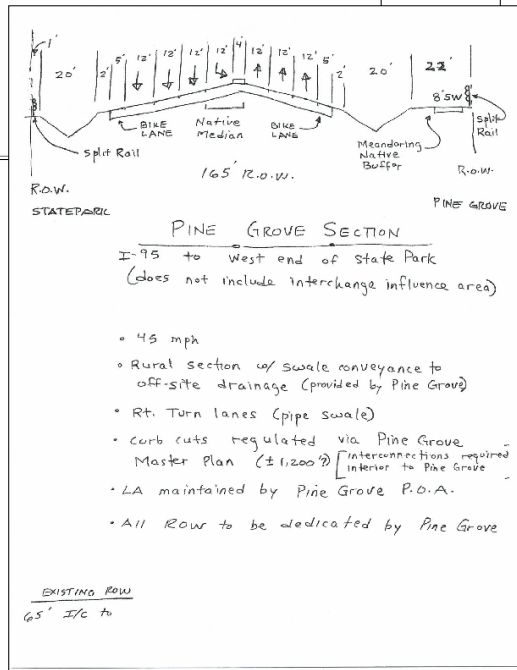 1'
20'
2'
5'
12'
12'
12'
12'
4'
12'
12'
12'
5'
2'
20'
22'
8' SW
BIKE LANE
Native Median
BIKE LANE
Meandering Native Buffer
Split Rail
Split Rail
165' R.O.W.
R.O.W.
R.O.W.
STATE PARK
PINE GROVE
PINE GROVE SECTION
I-95 to West end of State Park
(does not include interchange influence area)
• 45 mph
• Rural section w/ swale conveyance to
off-site drainage (provided by Pine Grove)
• Rt. Turn lanes (pipe swale)
• Curb cuts regulated via Pine Grove
Master Plan (±1,200'?) [interconnections required
interior to Pine Grove
• LA maintained by Pine Grove P.O.A.
• All ROW to be dedicated by Pine Grove
EXISTING ROW
65' I/C to